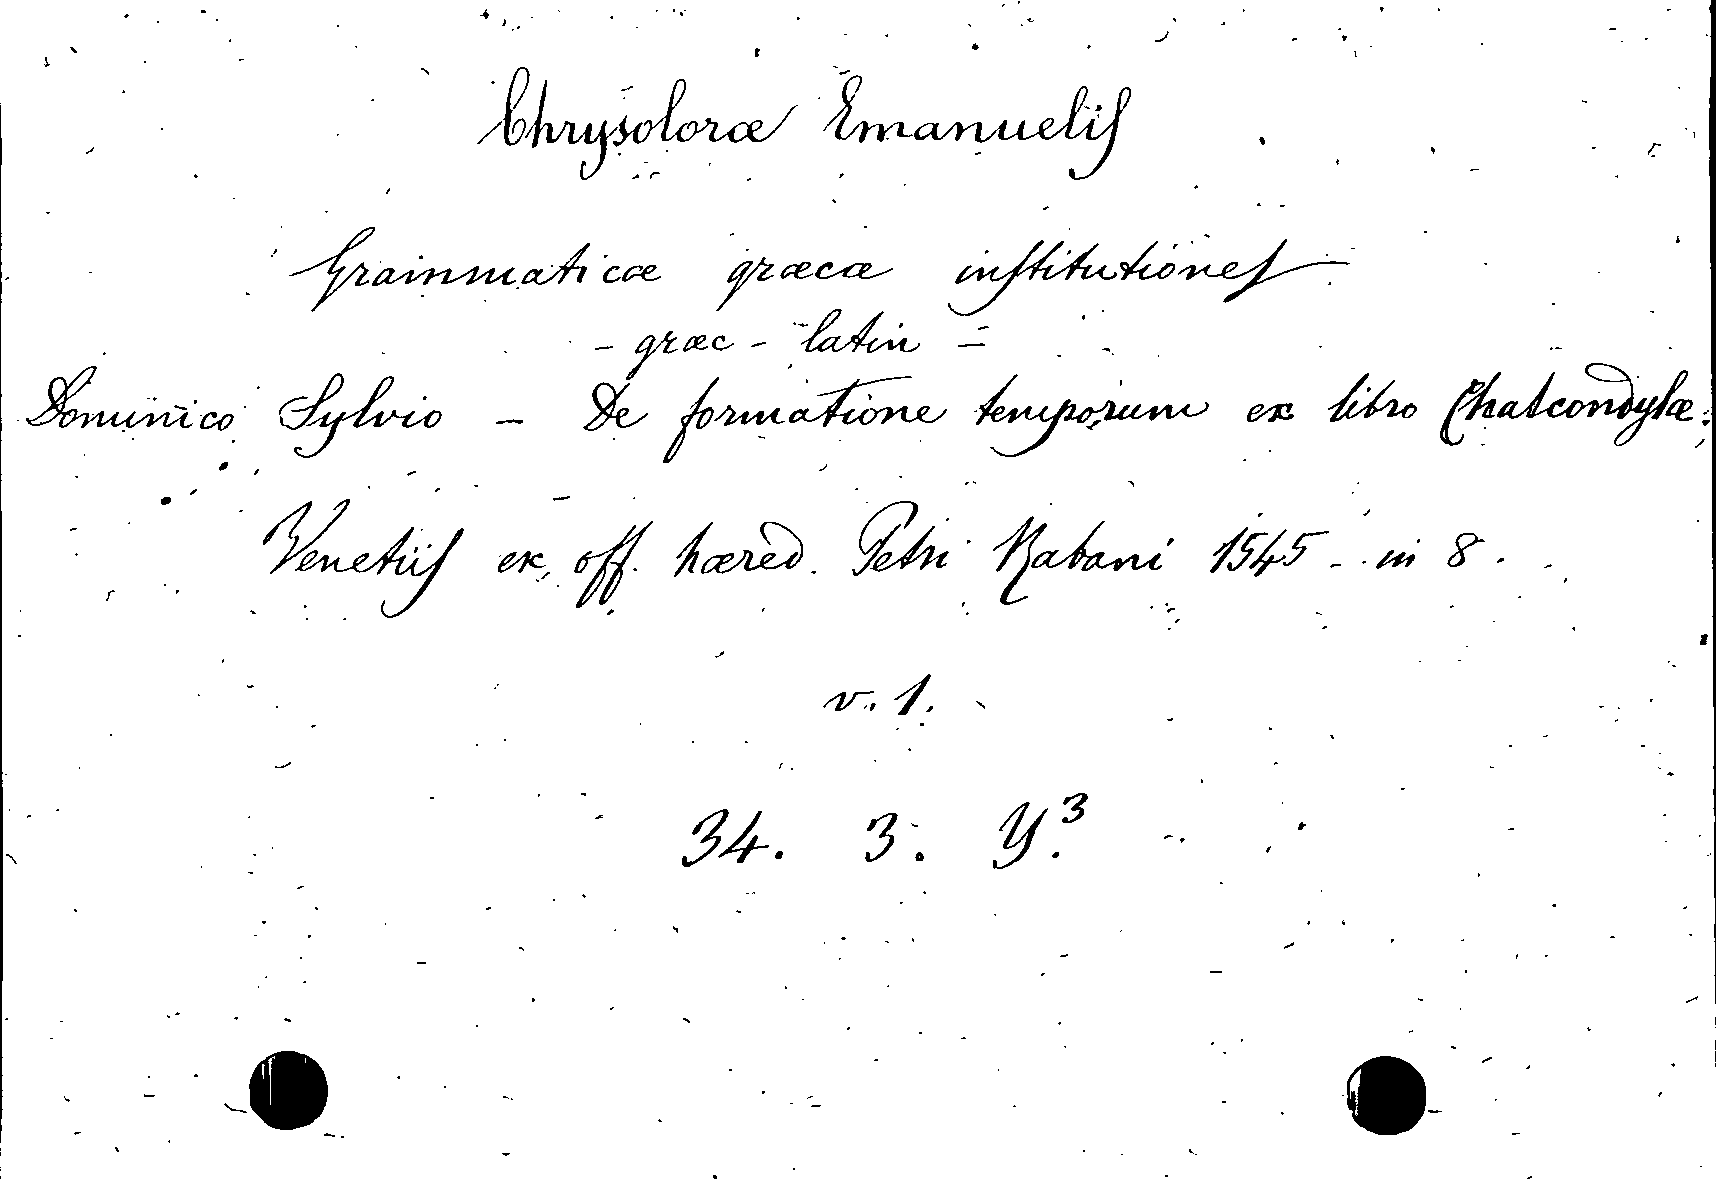 Chrysoloræ Emanuelis
Grammaticæ græcæ institutiones
- græc - latin -
Dominico Sylvio - De formatione temporum ex libro Chalcondylæ.
Venetiis ex off. hæred. Petri Rabani 1545 - in 8.
v. 1.
34. 3. Y.³